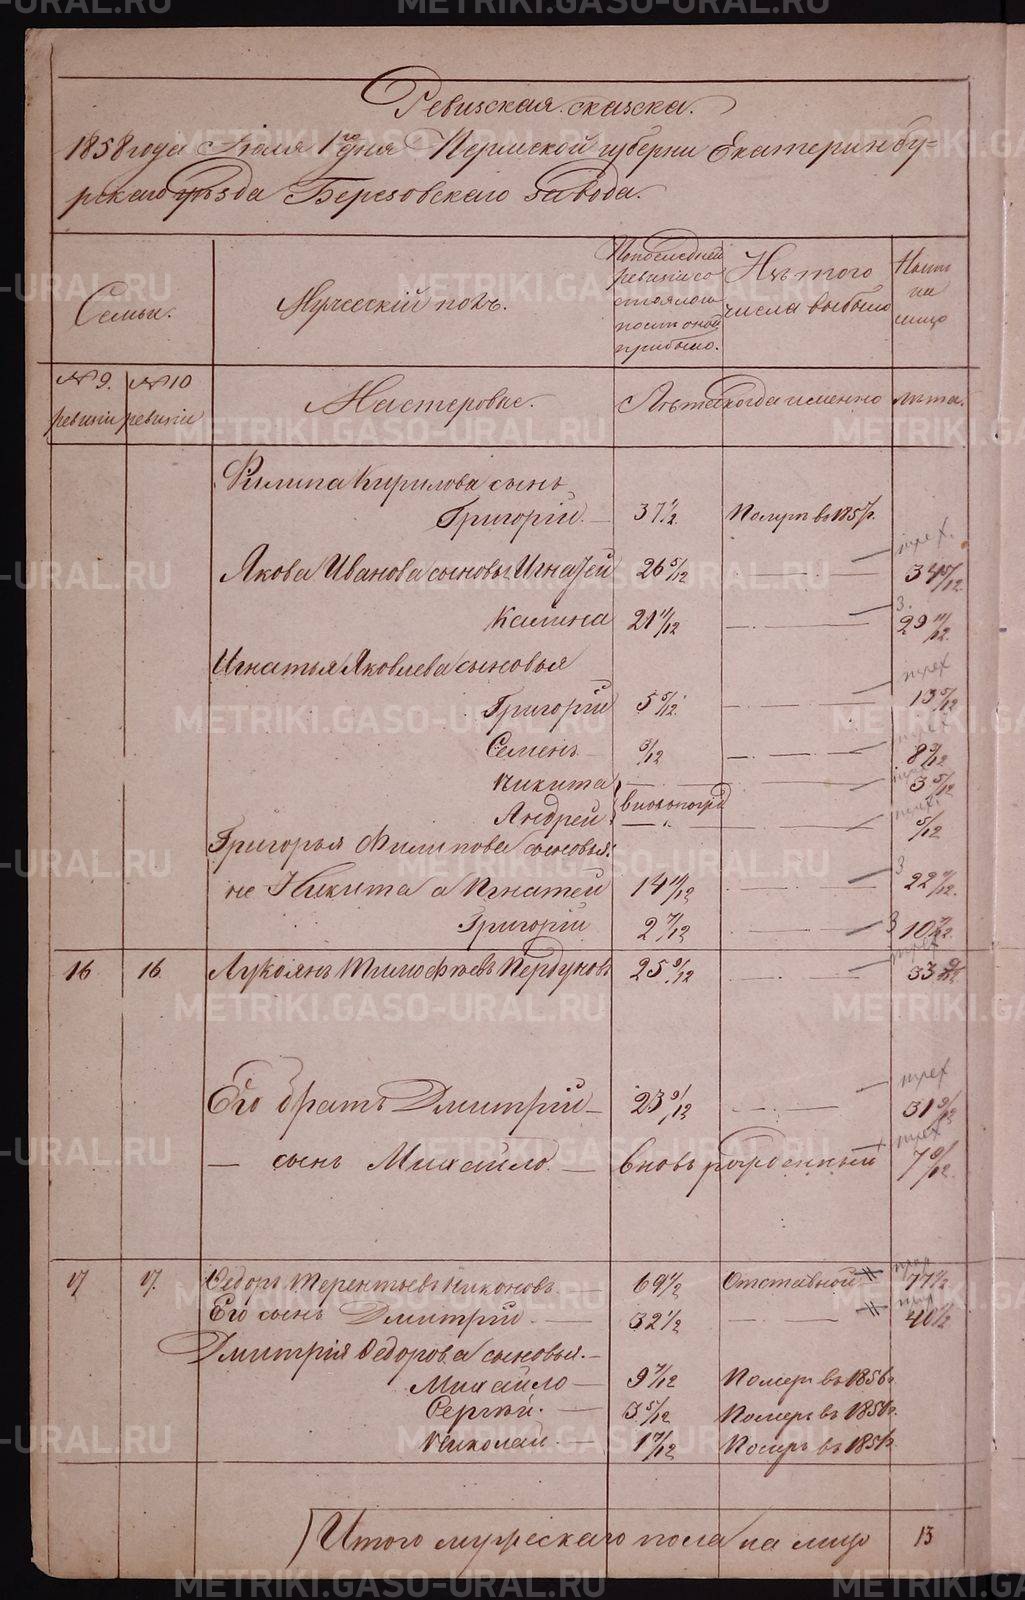 Ревизская сказска.
1858 года Июля 1го дня Пермской губерни Екатеринбу-
рскаго уѣзда Березовскаго завода.
Семьи.
Мужескій полъ.
По последней ревизіи состояло и после оной прибыло.
Изъ того числа выбыло
Ныне на лицо
№ 9. ревизіи
№ 10 ревизіи
Мастеровые.
Лѣта
когда именно
лѣта.
Филипа Кирилова сынъ
Григорій. — 37 1/2 Померъ в 1857 г.
Якова Иванова сыновья Игнатей 26 5/12 — 34 5/12
Калина 21 11/12 — 3. 29 11/12
Игнатья Яковлева сыновья
Григорій 5 5/12 — 13 5/12
Семенъ 9/12 — 8 9/12
Никита — 3 5/12
Андрей — 5/12
Григорья Филипова сыновья:
не Никита а Игнатей 14 11/12 — 3 22 11/12
Григорій 2 7/12 — 3 10 7/12
16 16 Лукоянъ Тимофѣевъ 25 9/12 — 33 9/12
Его братъ Дмитрій — 23 9/12 — 31 9/12
— сынъ Михайло. — вновь рожденный 7 9/12
17 17. Федоръ Терентьевъ Никоновъ — 69 1/2 Отставной 77 1/2
Его сынъ Дмитрій. — 32 1/2 — 40 1/2
Дмитрія Федорова сыновья. —
Михайло — 9 7/12 Померъ въ 1856 г.
Сергѣй. — 3 5/12 Померъ въ
Николай — 1 7/12 Померъ въ
Итого мужескаго пола на лицо 13
METRIKI.GASO-URAL.RU